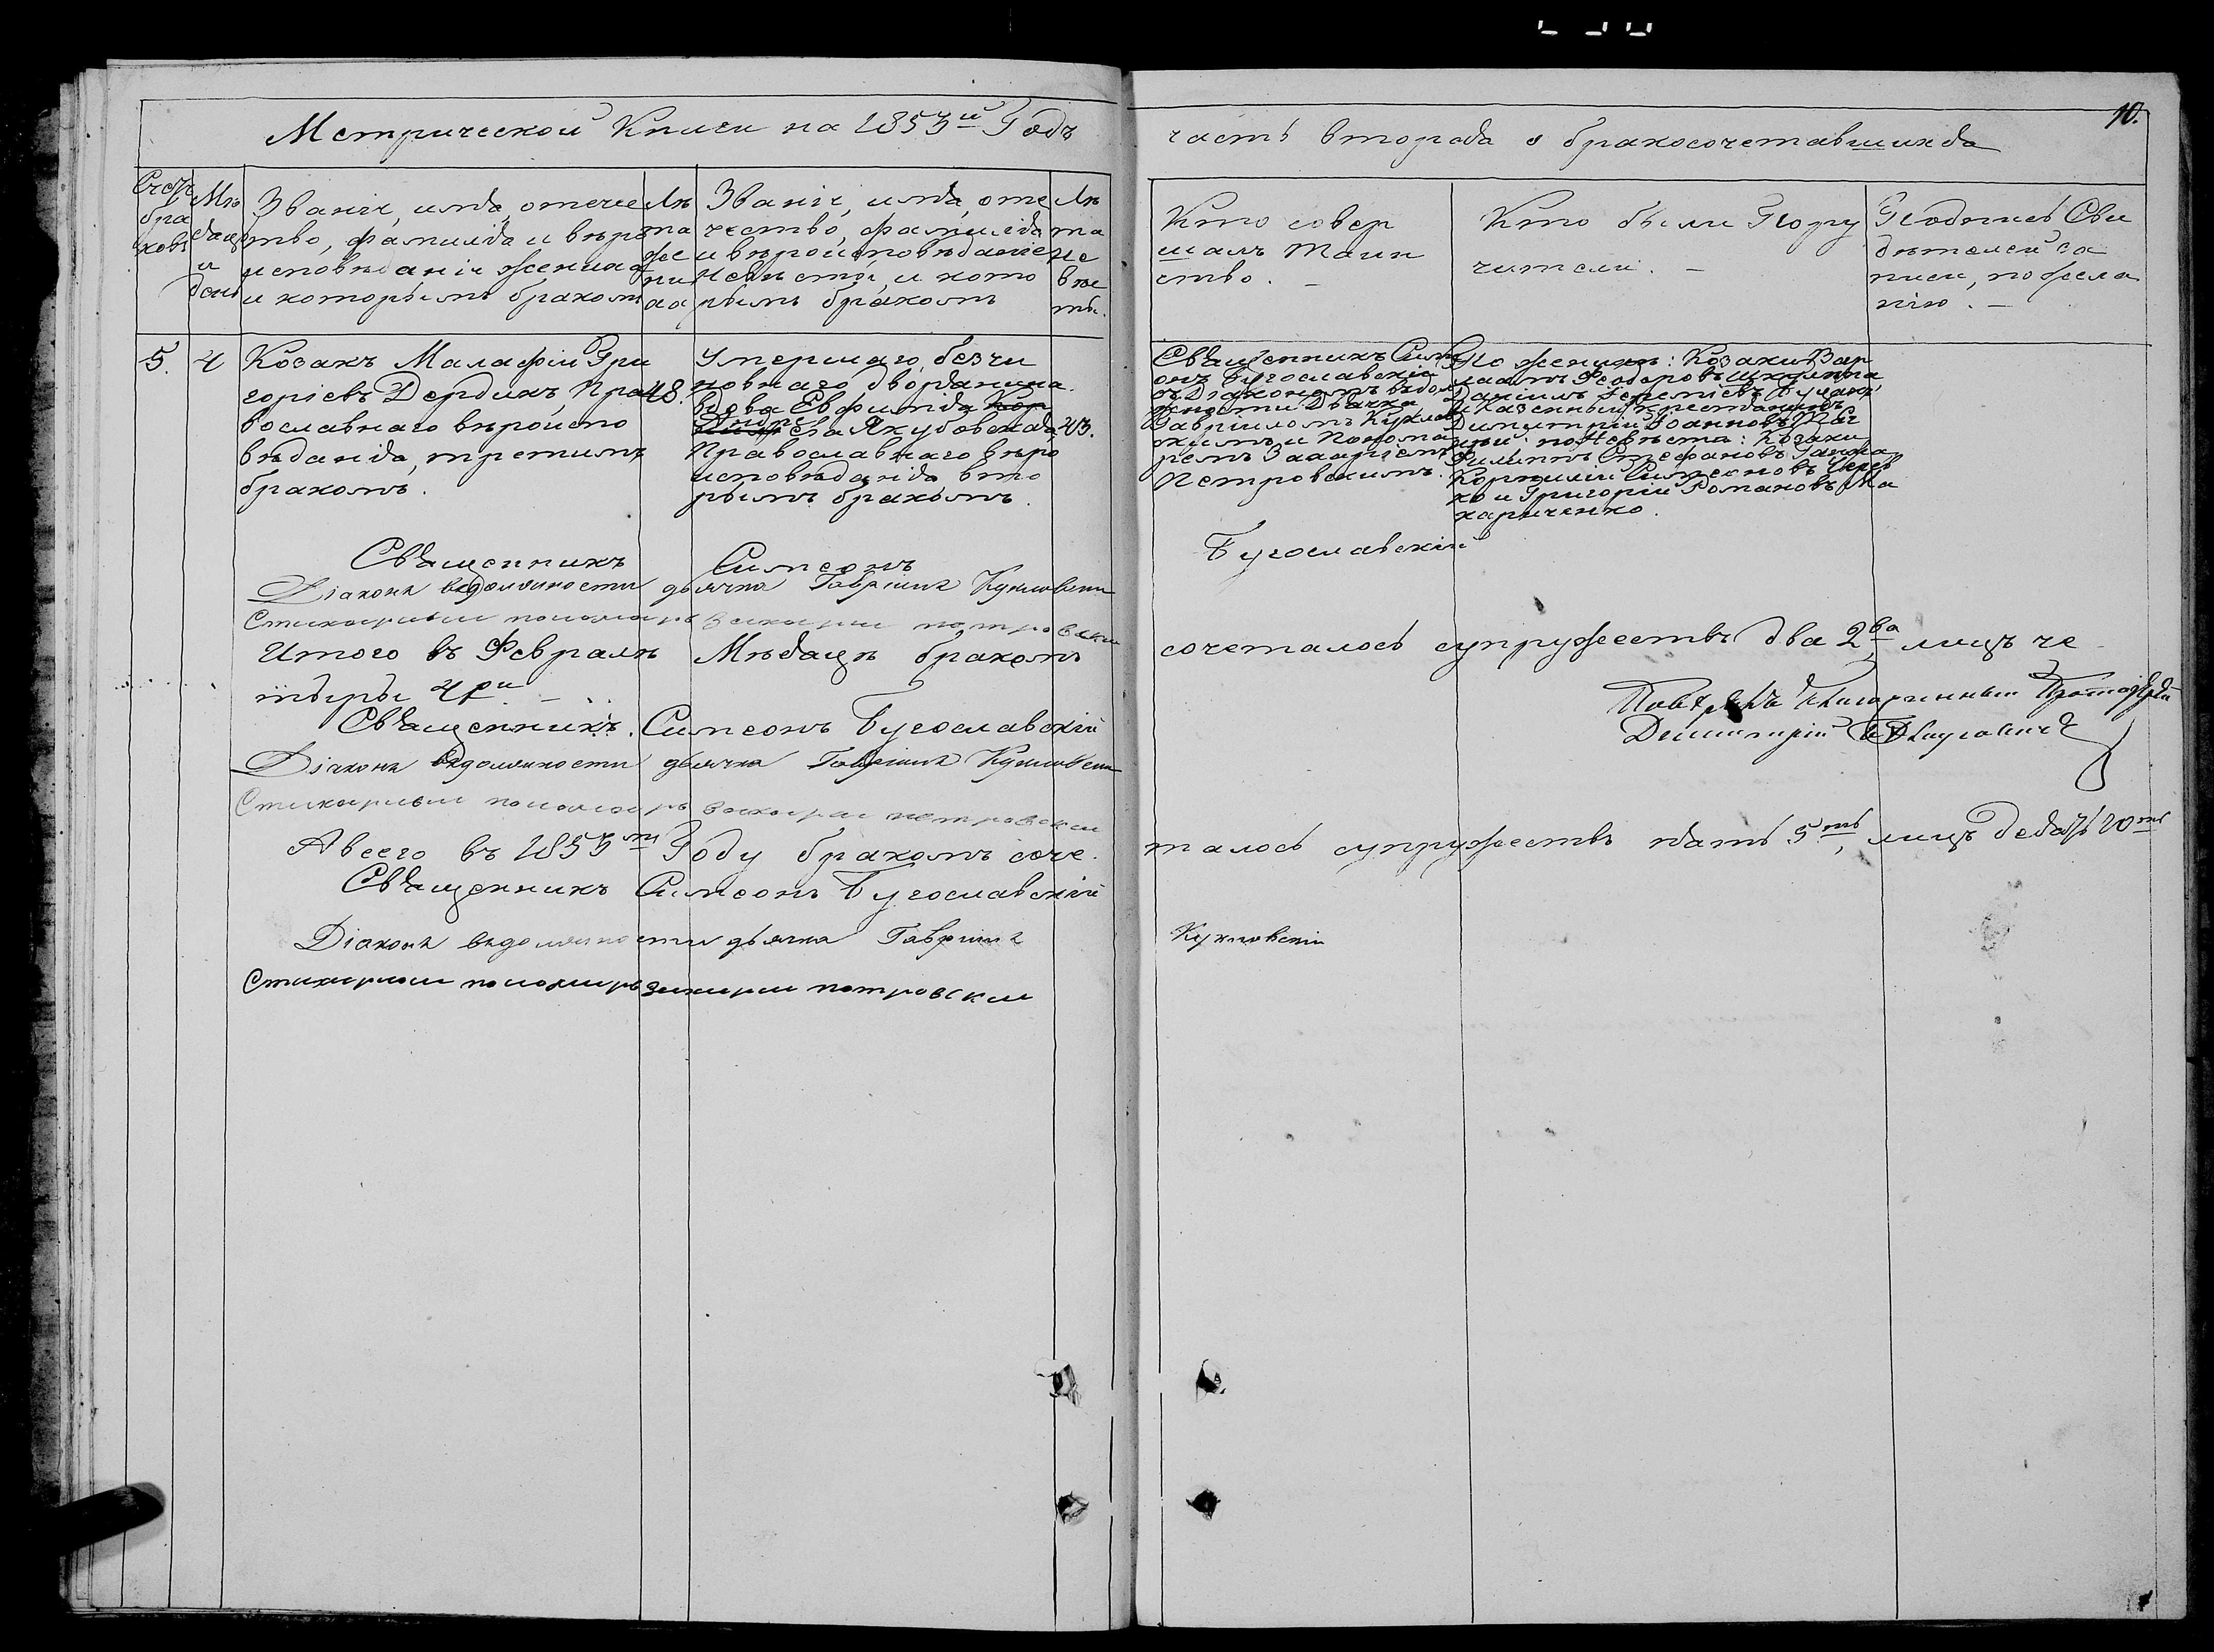 Метрической Книги на 1853й Годъ
часть вторая о бракосочетавшихся
10.
Счетъ браковъ
Мѣсяцъ и день
Званіе, имя, отече
ство, фамилія и вѣро
исповѣданіе жениха
и которымъ бракомъ
Лѣ
та
же
ни
ха
Званіе, имя, оте
чество, фамилія
и вѣроисповѣданіе
Невѣсты, и кото
рымъ бракомъ
Лѣ
та
не
вѣс
ты.
Кто совер
шалъ Таин
ство. –
Кто были Пору
чители. –
Подпись Сви
дѣтелей за
писи, по жела
нію. –
5.
4
Козакъ Малафій Гри
горіевъ Дердикъ, Пра
вославнаго вѣроиспо
вѣданія, третимъ
бракомъ.
48.
Умершаго безчи
новнаго дворянина
вдова Евфимія Кор
Андре
ева Якубовская
Православнаго вѣро
исповѣданія, вто
рымъ бракомъ.
43.
Священникъ Симе
онъ Бугославскій
съ Діакономъ въ дол
жности Дьячка
Гавріиломъ Куклов
скимъ и Понома
ремъ Захаріемъ
Петровскимъ.
По женихѣ: Козаки Вар
лаамъ Феодоровъ
Даніилъ Іереміевъ
и Казенный крестьянинъ
Димитрій Іоанновъ
по Невѣстѣ: Козаки
Филиппъ Стефановъ
Корнилій Симеоновъ
ко и Григорій Романовъ Ма
кариченко.
Священникъ Симеонъ Бугославскій
Діаконъ въ должности дьячка Гавріилъ Кукловскій
Стихарный пономарь Захарій Петровскій
Итого въ Февралѣ Мѣсяцѣ бракомъ сочеталось супружествъ два 2ва, лицъ че
тыре 4ри. –
Священникъ Симеонъ Бугославскій
Діаконъ въ должности дьячка Гавріилъ Кукловскій
Стихарный пономарь Захарій Петровскій
Протоіерей
Димитрій
Авсего въ 1853мъ Году бракомъ соче
талось супружествъ пять 5ть, лицъ десять 10ть
Священникъ Симеонъ Бугославскій
Діаконъ въ должности дьячка Гавріилъ Кукловскій
Стихарный пономарь Захарій Петровскій